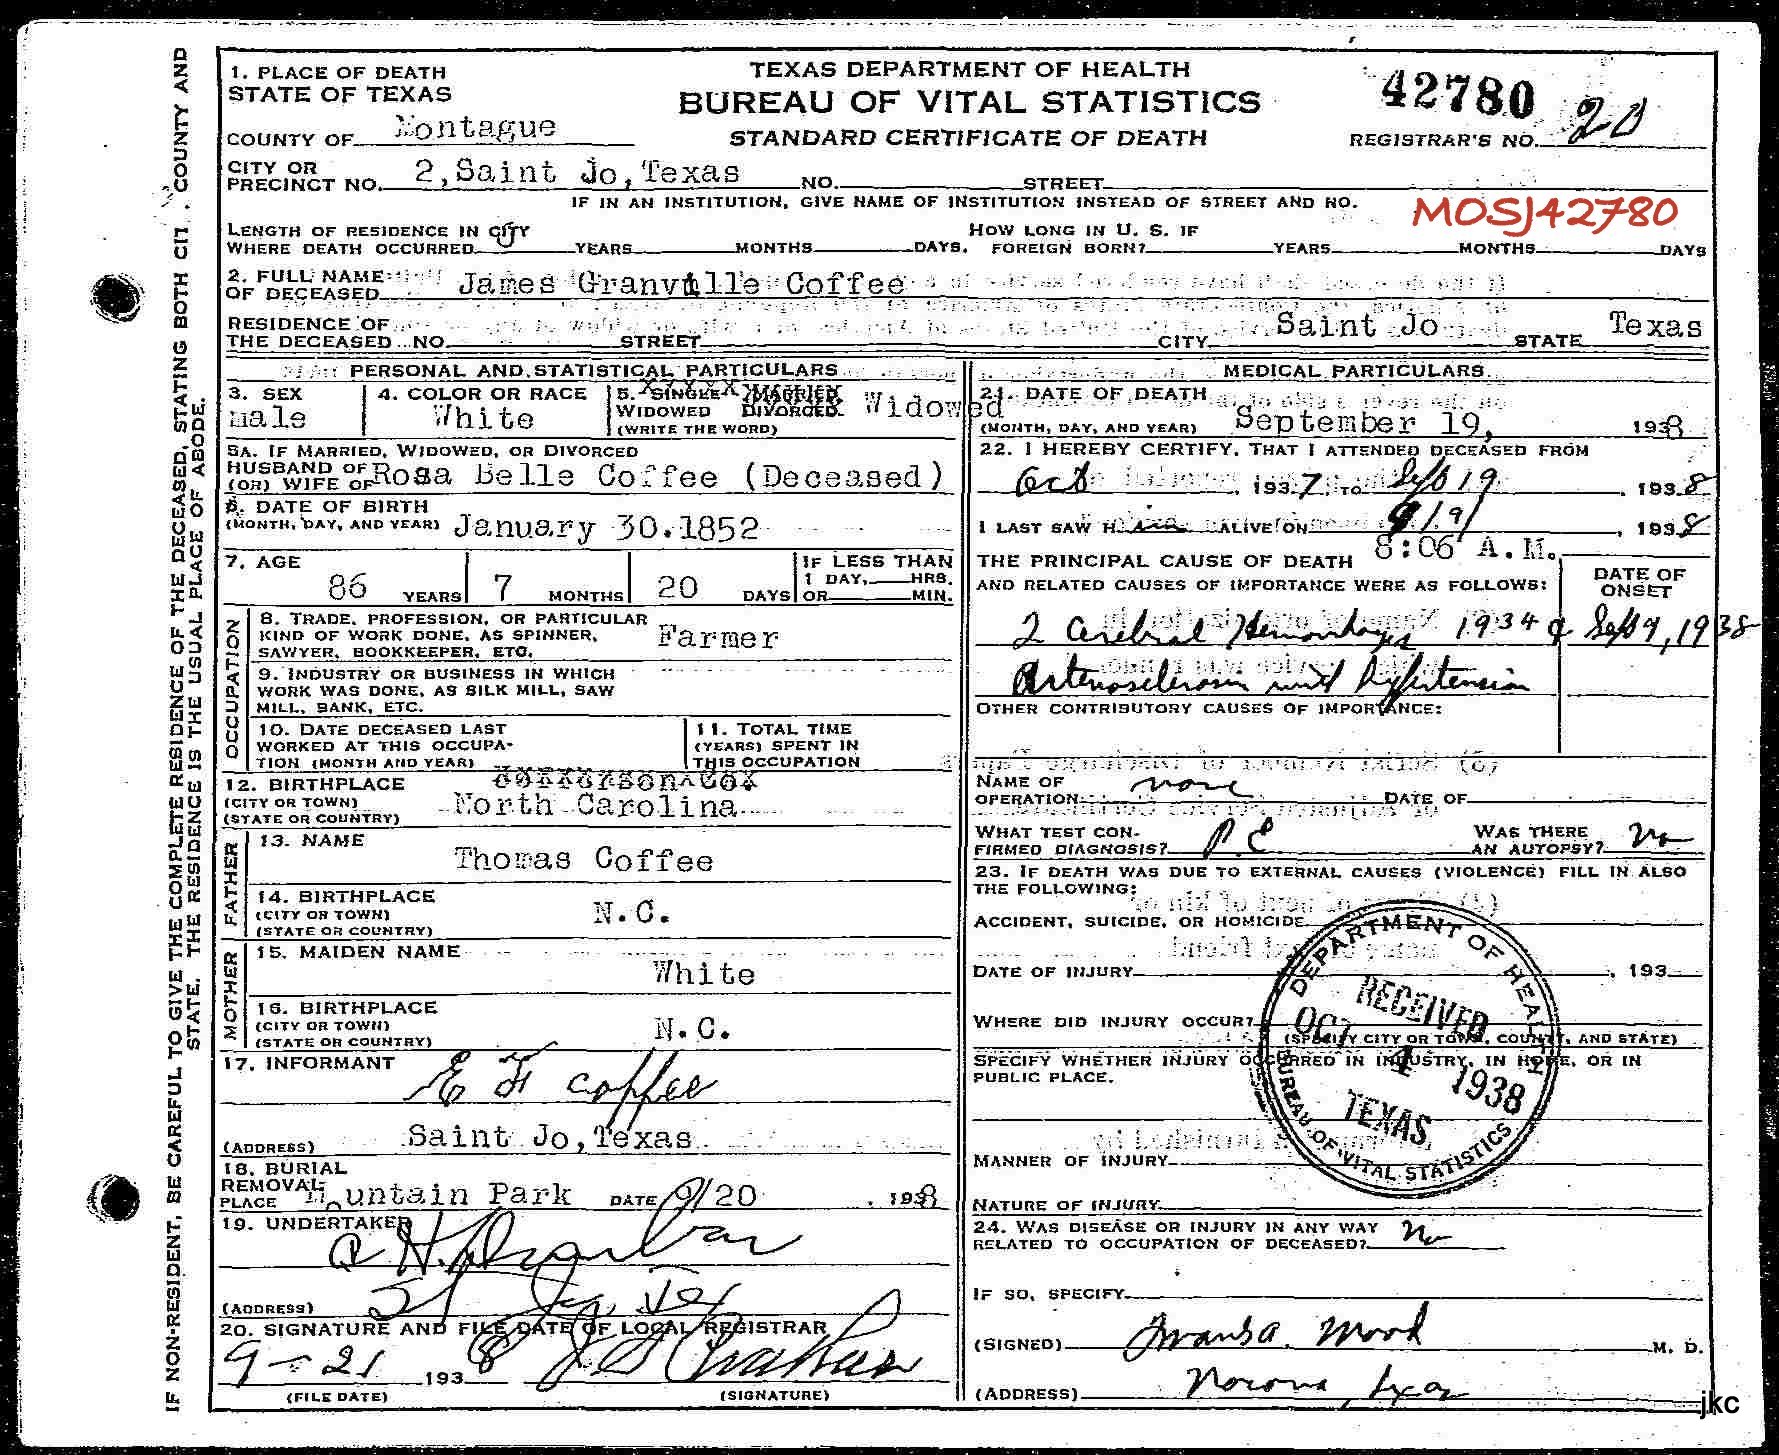 IF NON-RESIDENT, BE CAREFUL TO GIVE THE COMPLETE RESIDENCE OF THE DECEASED, STATING BOTH CIT. COUNTY AND
STATE. THE RESIDENCE IS THE USUAL PLACE OF ABODE.
1. PLACE OF DEATH
STATE OF TEXAS
COUNTY OF Montague
TEXAS DEPARTMENT OF HEALTH
BUREAU OF VITAL STATISTICS
STANDARD CERTIFICATE OF DEATH
42780
REGISTRAR'S NO. 20
CITY OR
PRECINCT NO. 2, Saint Jo, Texas NO. STREET
IF IN AN INSTITUTION, GIVE NAME OF INSTITUTION INSTEAD OF STREET AND NO.
MOSJ42780
LENGTH OF RESIDENCE IN CITY
WHERE DEATH OCCURRED YEARS MONTHS DAYS.
HOW LONG IN U. S. IF
FOREIGN BORN? YEARS MONTHS DAYS
2. FULL NAME
OF DECEASED James Granville Coffee
RESIDENCE OF
THE DECEASED NO. STREET CITY Saint Jo STATE Texas
PERSONAL AND STATISTICAL PARTICULARS
3. SEX
male
4. COLOR OR RACE
White
5. SINGLE MARRIED
WIDOWED DIVORCED. Widowed
(WRITE THE WORD)
5A. IF MARRIED, WIDOWED, OR DIVORCED
HUSBAND OF
(OR) WIFE OF Rosa Belle Coffee (Deceased)
6. DATE OF BIRTH
(MONTH, DAY, AND YEAR) January 30.1852
7. AGE
86 YEARS 7 MONTHS 20 DAYS
IF LESS THAN
1 DAY, HRS.
OR MIN.
OCCUPATION
8. TRADE, PROFESSION, OR PARTICULAR
KIND OF WORK DONE, AS SPINNER,
SAWYER, BOOKKEEPER, ETC.
Farmer
9. INDUSTRY OR BUSINESS IN WHICH
WORK WAS DONE, AS SILK MILL, SAW
MILL, BANK, ETC.
10. DATE DECEASED LAST
WORKED AT THIS OCCUPA-
TION (MONTH AND YEAR)
11. TOTAL TIME
(YEARS) SPENT IN
THIS OCCUPATION
12. BIRTHPLACE
(CITY OR TOWN)
(STATE OR COUNTRY)
North Carolina
FATHER
13. NAME
Thomas Coffee
14. BIRTHPLACE
(CITY OR TOWN)
(STATE OR COUNTRY)
N.C.
MOTHER
15. MAIDEN NAME
White
16. BIRTHPLACE
(CITY OR TOWN)
(STATE OR COUNTRY)
N.C.
17. INFORMANT
E F Coffee
(ADDRESS) Saint Jo, Texas
18. BURIAL
REMOVAL
PLACE Mountain Park DATE 9/20 , 1938
19. UNDERTAKER
(ADDRESS) St Jo, Tex
20. SIGNATURE AND FILE DATE OF LOCAL REGISTRAR
9-21 1938
(FILE DATE) (SIGNATURE)
MEDICAL PARTICULARS
21. DATE OF DEATH
(MONTH, DAY, AND YEAR) September 19, 1938
22. I HEREBY CERTIFY, THAT I ATTENDED DECEASED FROM
Oct , 1937, TO Sept 19 , 1938
I LAST SAW H im ALIVE ON 9/19/ , 1938
THE PRINCIPAL CAUSE OF DEATH 8:06 A.M.
AND RELATED CAUSES OF IMPORTANCE WERE AS FOLLOWS:
DATE OF
ONSET
2 Cerebral Hemorrhages 1934 & Sept 9, 1938
Arteriosclerosis and hypertension
OTHER CONTRIBUTORY CAUSES OF IMPORTANCE:
NAME OF
OPERATION none DATE OF
WHAT TEST CON-
FIRMED DIAGNOSIS? P.E
WAS THERE
AN AUTOPSY? No
23. IF DEATH WAS DUE TO EXTERNAL CAUSES (VIOLENCE) FILL IN ALSO
THE FOLLOWING:
ACCIDENT, SUICIDE, OR HOMICIDE
DATE OF INJURY , 193
WHERE DID INJURY OCCUR?
(SPECIFY CITY OR TOWN, COUNTY, AND STATE)
SPECIFY WHETHER INJURY OCCURRED IN INDUSTRY, IN HOME, OR IN
PUBLIC PLACE.
DEPARTMENT OF HEALTH
RECEIVED
OCT 4 1938
TEXAS
BUREAU OF VITAL STATISTICS
MANNER OF INJURY
NATURE OF INJURY
24. WAS DISEASE OR INJURY IN ANY WAY
RELATED TO OCCUPATION OF DECEASED? No
IF SO, SPECIFY
(SIGNED) M. D.
(ADDRESS) Nocona, Texas
jkc